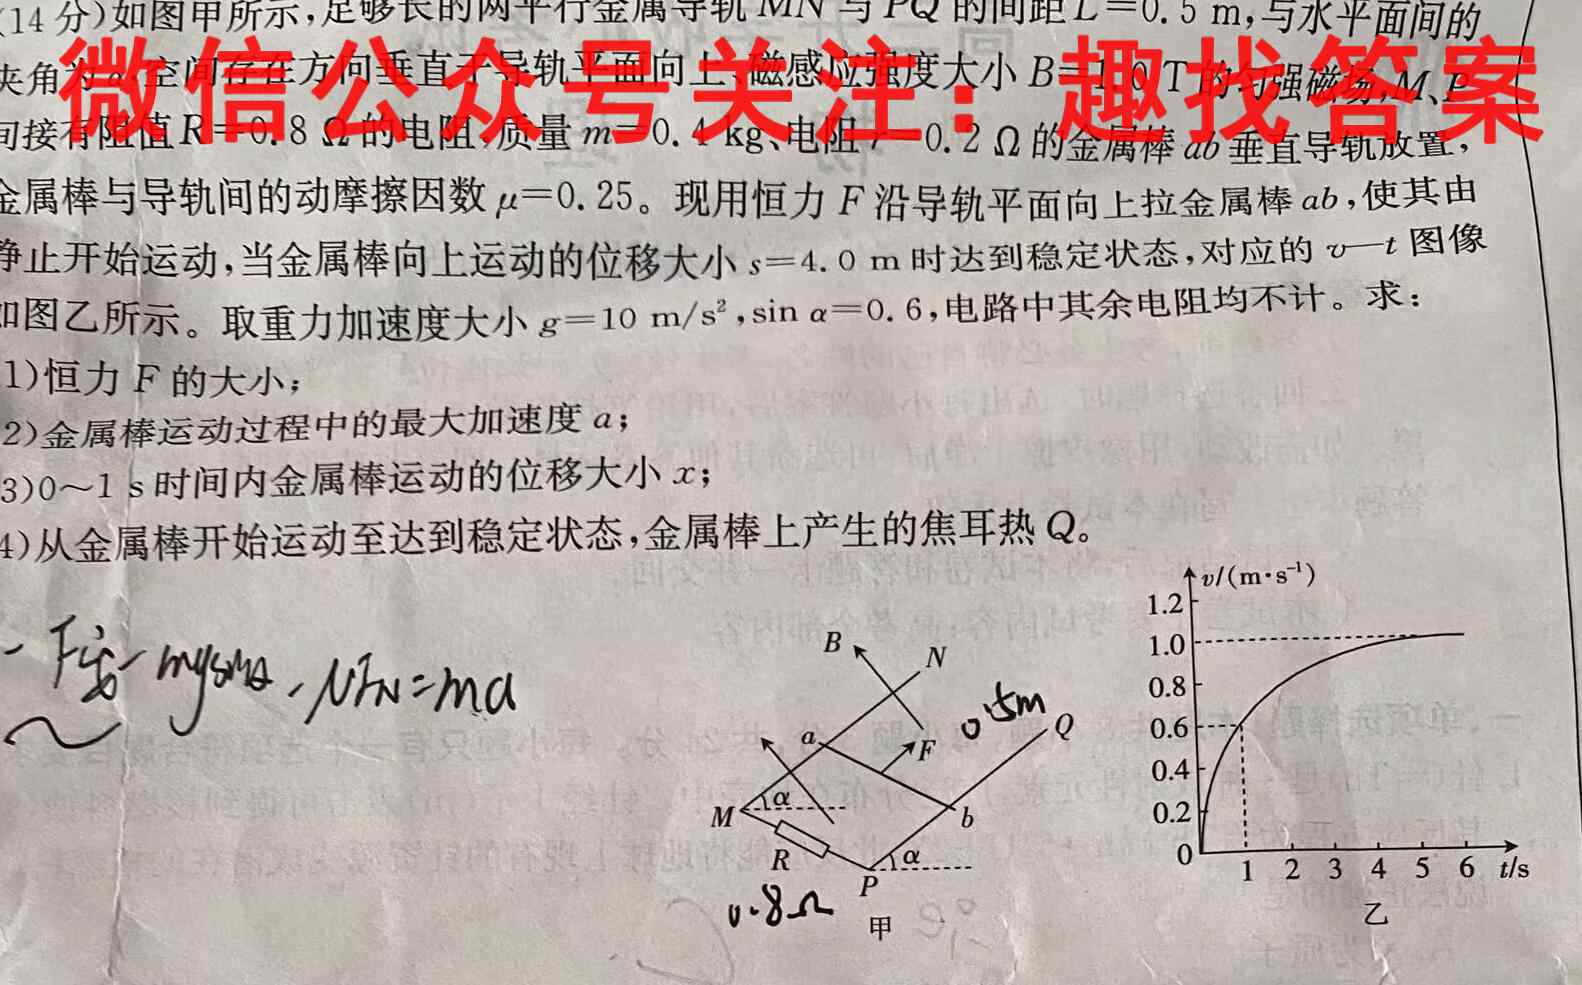 (14分)如图甲所示,足够长的两平行金属导轨MN与PQ的间距L=0.5 m,与水平面间的
夹角为α,空间存在方向垂直于导轨平面向上、磁感应强度大小B=1.0 T的匀强磁场,M、P
间接有阻值R=0.8 Ω的电阻,质量m=0.4 kg、电阻r=0.2 Ω的金属棒ab垂直导轨放置,
微信公众号关注：趣找答案
金属棒与导轨间的动摩擦因数μ=0.25。现用恒力F沿导轨平面向上拉金属棒ab,使其由
静止开始运动,当金属棒向上运动的位移大小s=4.0 m时达到稳定状态,对应的v—t图像
如图乙所示。取重力加速度大小g=10 m/s²,sin α=0.6,电路中其余电阻均不计。求:
1)恒力F的大小;
2)金属棒运动过程中的最大加速度a;
3)0~1 s时间内金属棒运动的位移大小x;
4)从金属棒开始运动至达到稳定状态,金属棒上产生的焦耳热Q。
mgsinθ - μFN=ma
B
N
0.5m
Q
a
F
M
α
b
R
α
P
0.8Ω
甲
v/(m·s⁻¹)
1.2
1.0
0.8
0.6
0.4
0.2
0
1 2 3 4 5 6 t/s
乙